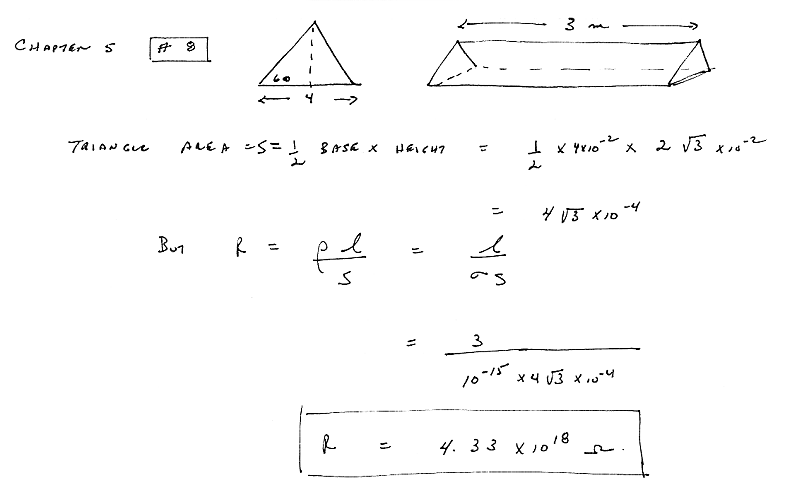 CHAPTER 5 # 8
60
4
3 m
TRIANGLE AREA = S = 1/2 BASE × HEIGHT = 1/2 × 4×10⁻² × 2 √3 ×10⁻²
= 4 √3 ×10⁻⁴
BUT R = ρ l / S = l / σ S
= 3 / 10⁻¹⁵ × 4 √3 × 10⁻⁴
R = 4.33 × 10¹⁸ Ω.